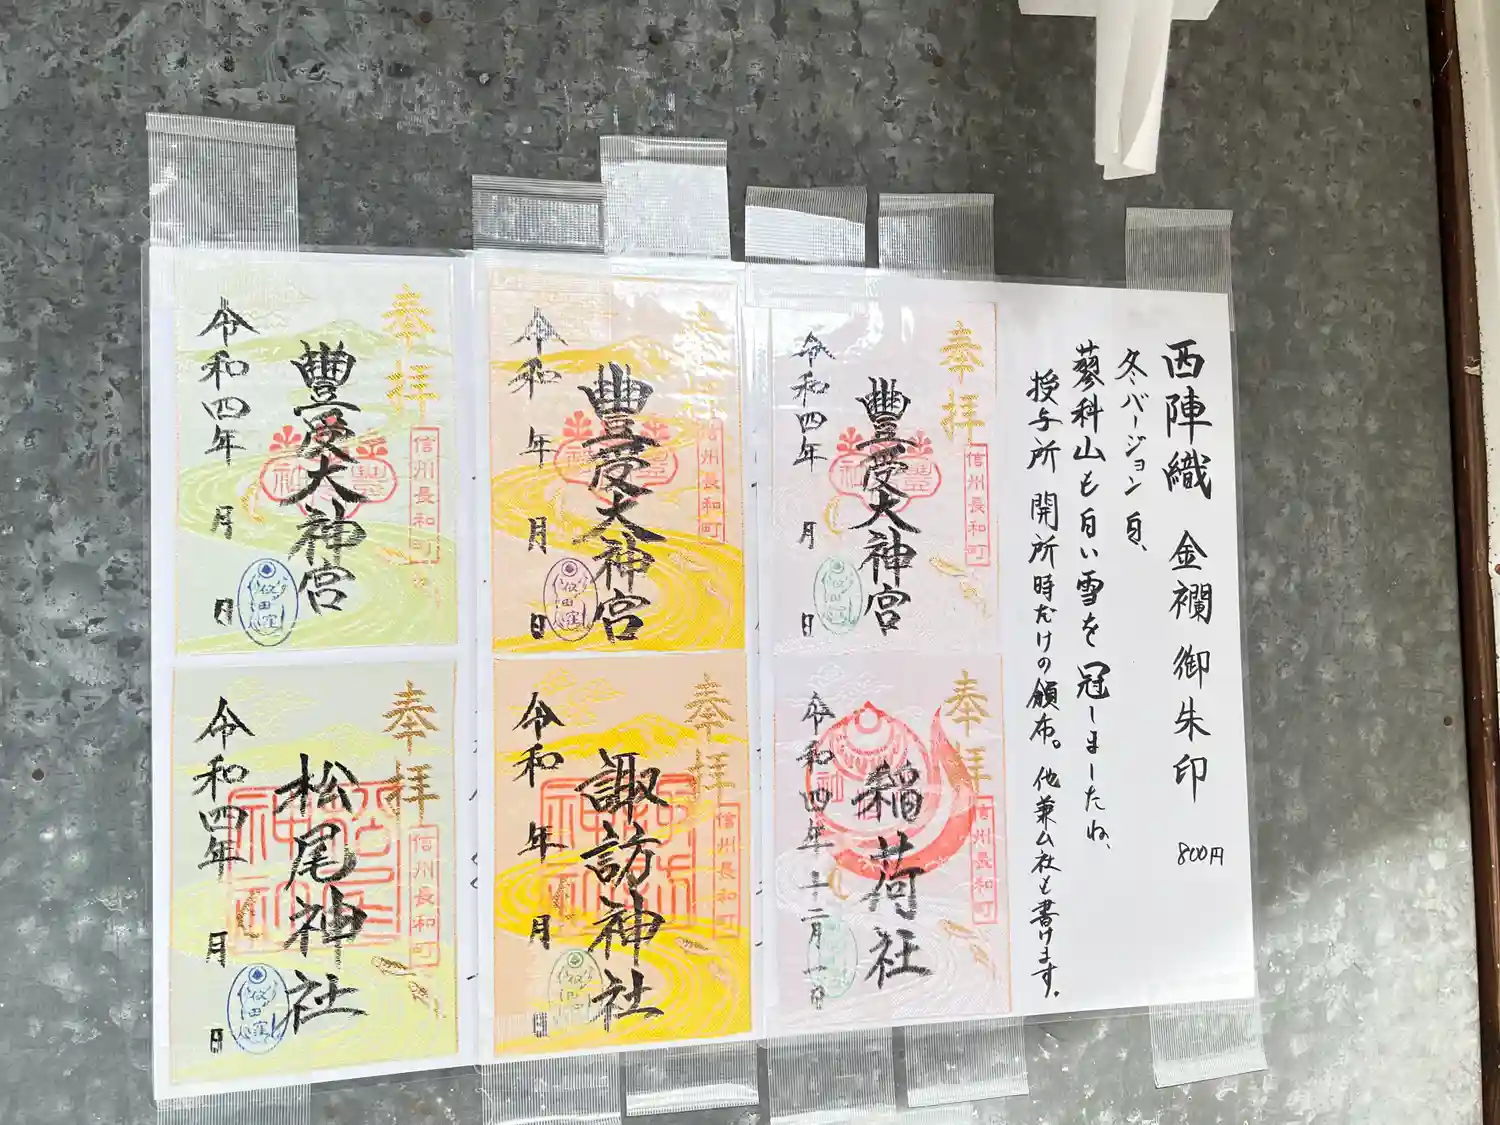 西陣織 金襴 御朱印 800円
冬バージョン 白、
蓼科山も白い雪を冠しましたね、
授与所 開所時だけの頒布。他兼ム社も書けます。
奉拝
信州長和町
豐受大神宮
令和四年 月 日
奉拝
信州長和町
稲荷社
令和四年十二月一日
奉拝
信州長和町
豐受大神宮
令和 年 月 日
奉拝
信州長和町
諏訪神社
令和 年 月 日
奉拝
信州長和町
豐受大神宮
令和四年 月 日
奉拝
信州長和町
松尾神社
令和四年 月 日